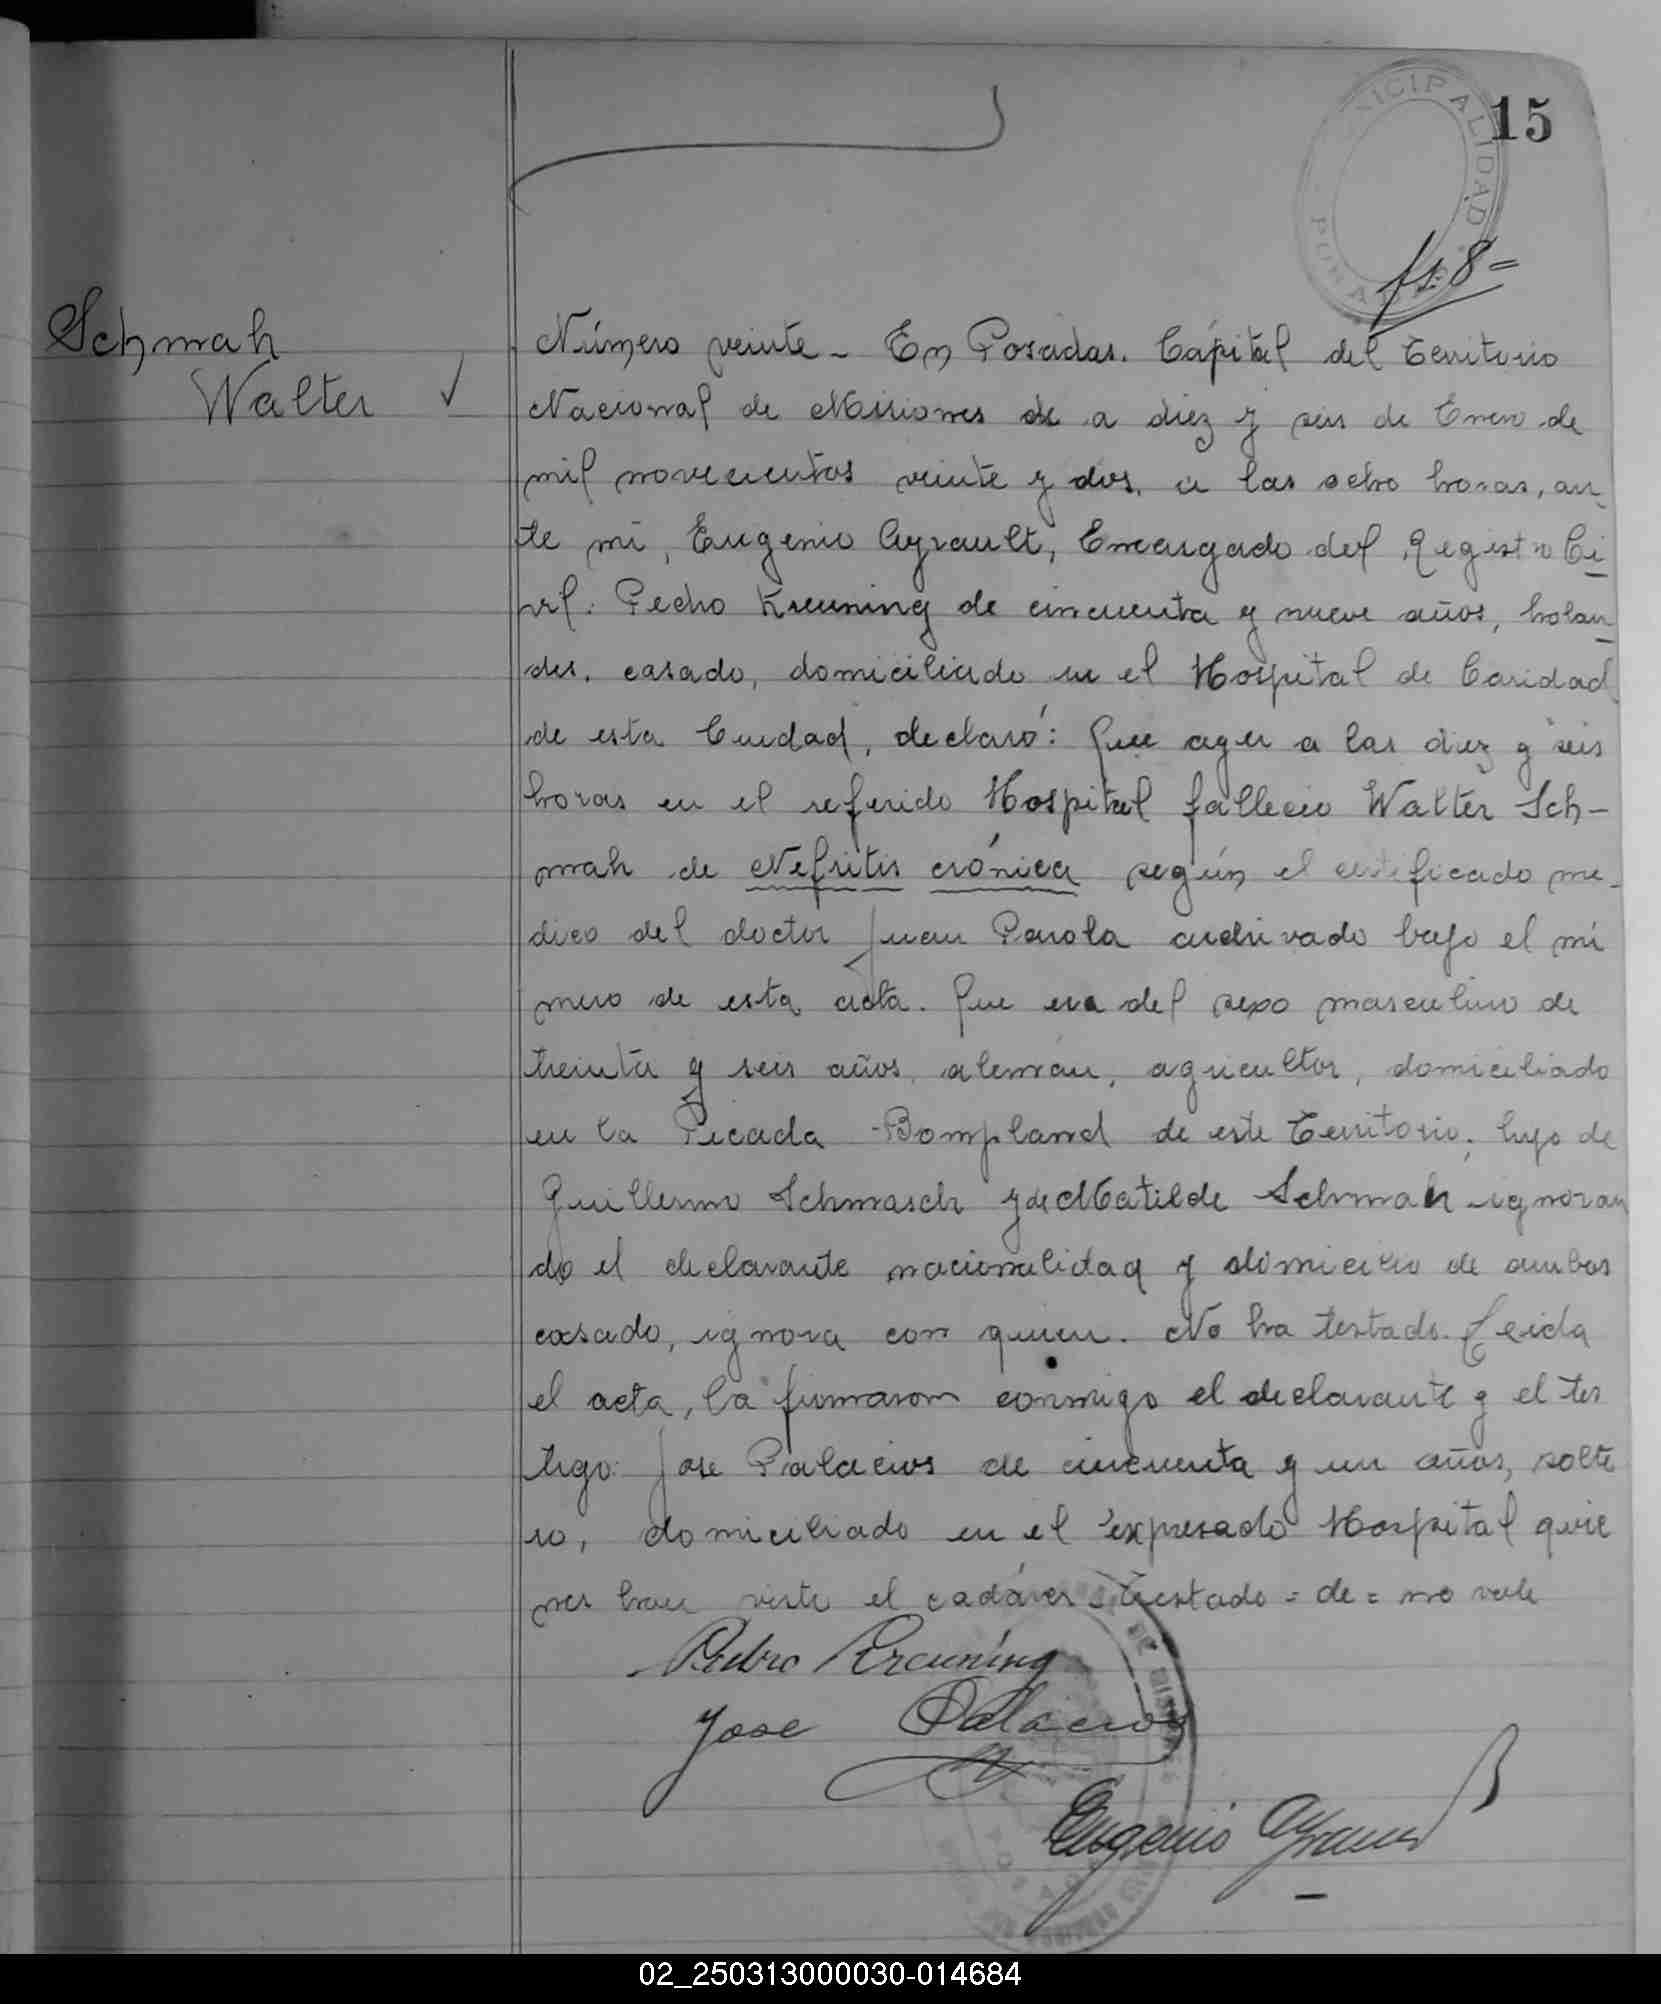 15
MUNICIPALIDAD
POSADAS
fs. 8=
Schmah
Walter
Número veinte - En Posadas. Cápital del territorio
Nacional de Misiones de a diez y seis de Enero de
mil novecientos veinte y dos, a las ocho horas, an
te mi, Eugenio Ayrault, Encargado del Registro Ci
vil: Pedro Kreuning de cincuenta y nueve años, holan
des, casado, domiciliado en el Hospital de Caridad
de esta Ciudad, declaró: Que ayer a las diez y seis
horas en el referido Hospital fallecio Walter Sch-
mah de Nefritis crónica según el certificado me-
dico del doctor Juan Parola archivado bajo el nú
mero de esta acta. Que era del sexo masculino de
treinta y seis años, alemán, agricultor, domiciliado
en la Picada Bompland de este territorio, hijo de
Guillermo Schmasch y de Matilde Schmah ignoran
do el declarante nacionalidad y domicilio de ambos
casado, ignora con quien. No ha testado. Leida
el acta, la firmaron conmigo el declarante y el tes
tigo: José Palacios de cincuenta y un años, solte
ro, domiciliado en el expresado Hospital quie
nes han visto el cadáver. Testado = de = no vale
Pedro Kreuning
Jose Palacios
Eugenio Ayrault
02_250313000030-014684